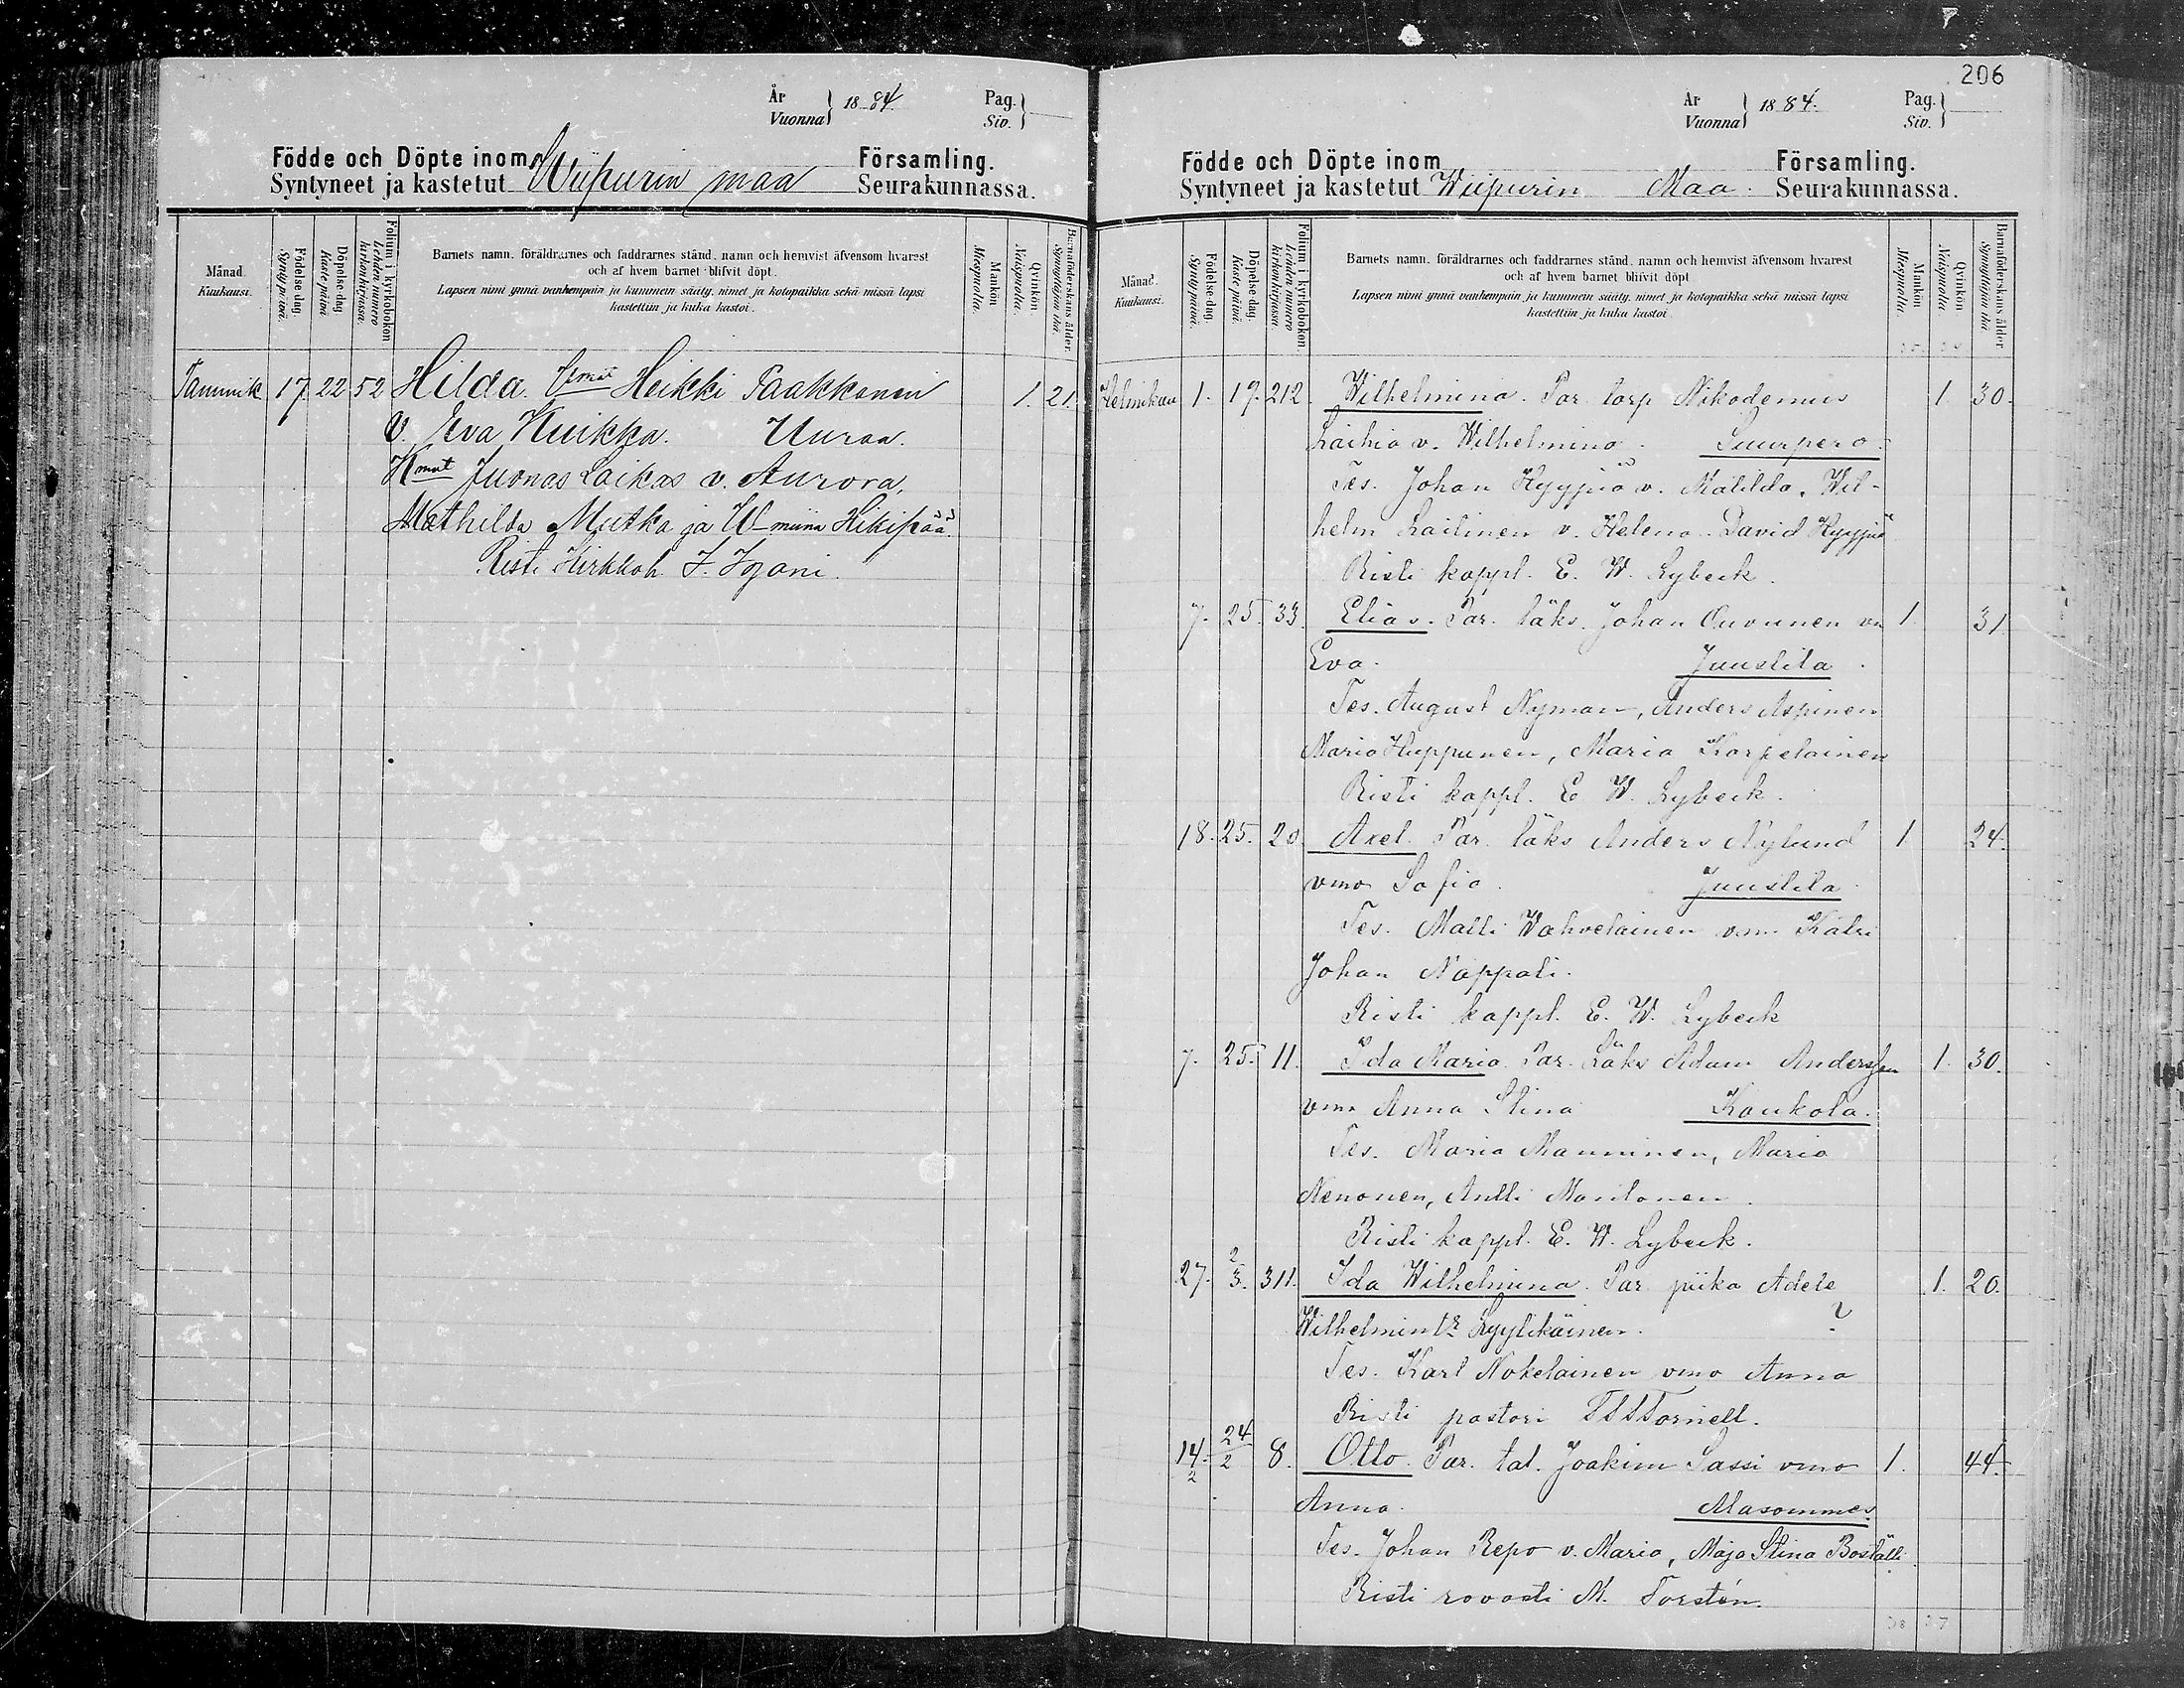 År
Vuonna } 1884.
Pag.
Siv. }
Födde och Döpte inom Församling.
Syntyneet ja kastetut Wiipurin maa Seurakunnassa.
Månad. Kuukausi.
Födelse-dag. Syntymäpäivä.
Döpelse-dag. Kaste-päivä.
Folium i kyrkobokon. Lehden numero kirkonkirjassa.
Barnets namn, föräldrarnes och faddrarnes stånd, namn och hemvist äfvensom hvarest
och af hvem barnet blifvit döpt.
Lapsen nimi ynnä vanhempain ja kummein sääty, nimet ja kotopaikka sekä missä lapsi
kastettiin ja kuka kastoi.
Mankön Miespuolia.
Qvinkön Naispuolia.
Barnföderskans ålder. Synnyttäjän ikä.
Tammik 17 22 52 Hilda. Heikki Paakkonen 1. 21.
v. Eva Kuikka. Uuraa.
Juonas Laikas v. Aurora,
Mathilda Mutka ja W-miina Hikipää.
Risti Kirkkoh. J. Jgoni.
206
År
Vuonna } 1884.
Pag.
Siv. }
Födde och Döpte inom Församling.
Syntyneet ja kastetut Wiipurin Maa. Seurakunnassa.
Månad. Kuukausi.
Födelse-dag. Syntymäpäivä.
Döpelse-dag. Kaste-päivä.
Folium i kyrkobokon. Lehden numero kirkonkirjassa.
Barnets namn, föräldrarnes och faddrarnes stånd, namn och hemvist äfvensom hvarest
och af hvem barnet blifvit döpt
Lapsen nimi ynnä vanhempain ja kummein sääty, nimet ja kotopaikka sekä missä lapsi
kastettiin ja kuka kastoi.
Mankön Miespuolia.
Qvinkön Naispuolia.
Barnföderskans ålder. Synnyttäjän ikä.
Helmikuu 1. 17. 212. Wilhelmina. Par. torp Nikodemus 1. 30.
Laihia v. Wilhelmina. Suurpero.
Tes. Johan Hyyppiä v. Matilda, Wil-
helm Laitinen v. Helena. David Hyyppiä
Risti kappl. E. W. Lybeck.
7. 25. 33. Elias. Par. läks. Johan Ouvunen vm 1. 31.
Eva. Juustila.
Tes. August Nyman, Anders Aspinen
Maria Huppunen, Maria Karpelainen
Risti kappl. E. W. Lybeck.
18. 25. 20. Axel. Par. läks Anders Nylund 1. 24.
vmo Sofia. Juustila.
Tes. Matti Wahvelainen vmo Katri
Johan Nappali.
Risti kappl. E. W. Lybeck
7. 25. 11. Ida Maria. Par. Läks Adam Andersson 1. 30.
vmo Anna Stina Kaukola.
Tes. Maria Manninen, Maria
Nenonen, Antti Montonen
Risti kappl. E. W. Lybeck.
27. 2/3. 311. Ida Wilhelmina. Par. piika Adele 1. 20.
Wilhelmintr Lyylikäinen. ?
Tes. Karl Nokelainen vmo Anna
Risti pastori Tornell.
14/2. 24/2 8. Otto. Par. tal. Joakim Sassi vmo 1. 44.
Anna. Alasommee
Tes. Johan Repo v. Maria, Maja Stina Boställi.
Risti rovasti M. Forstén.
38 37